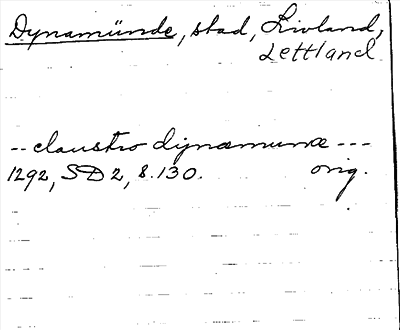 Dynamünde, stad, Livland,
Lettland
-- claustro dijnæmunæ ---
1292, SD 2, s. 130. orig.